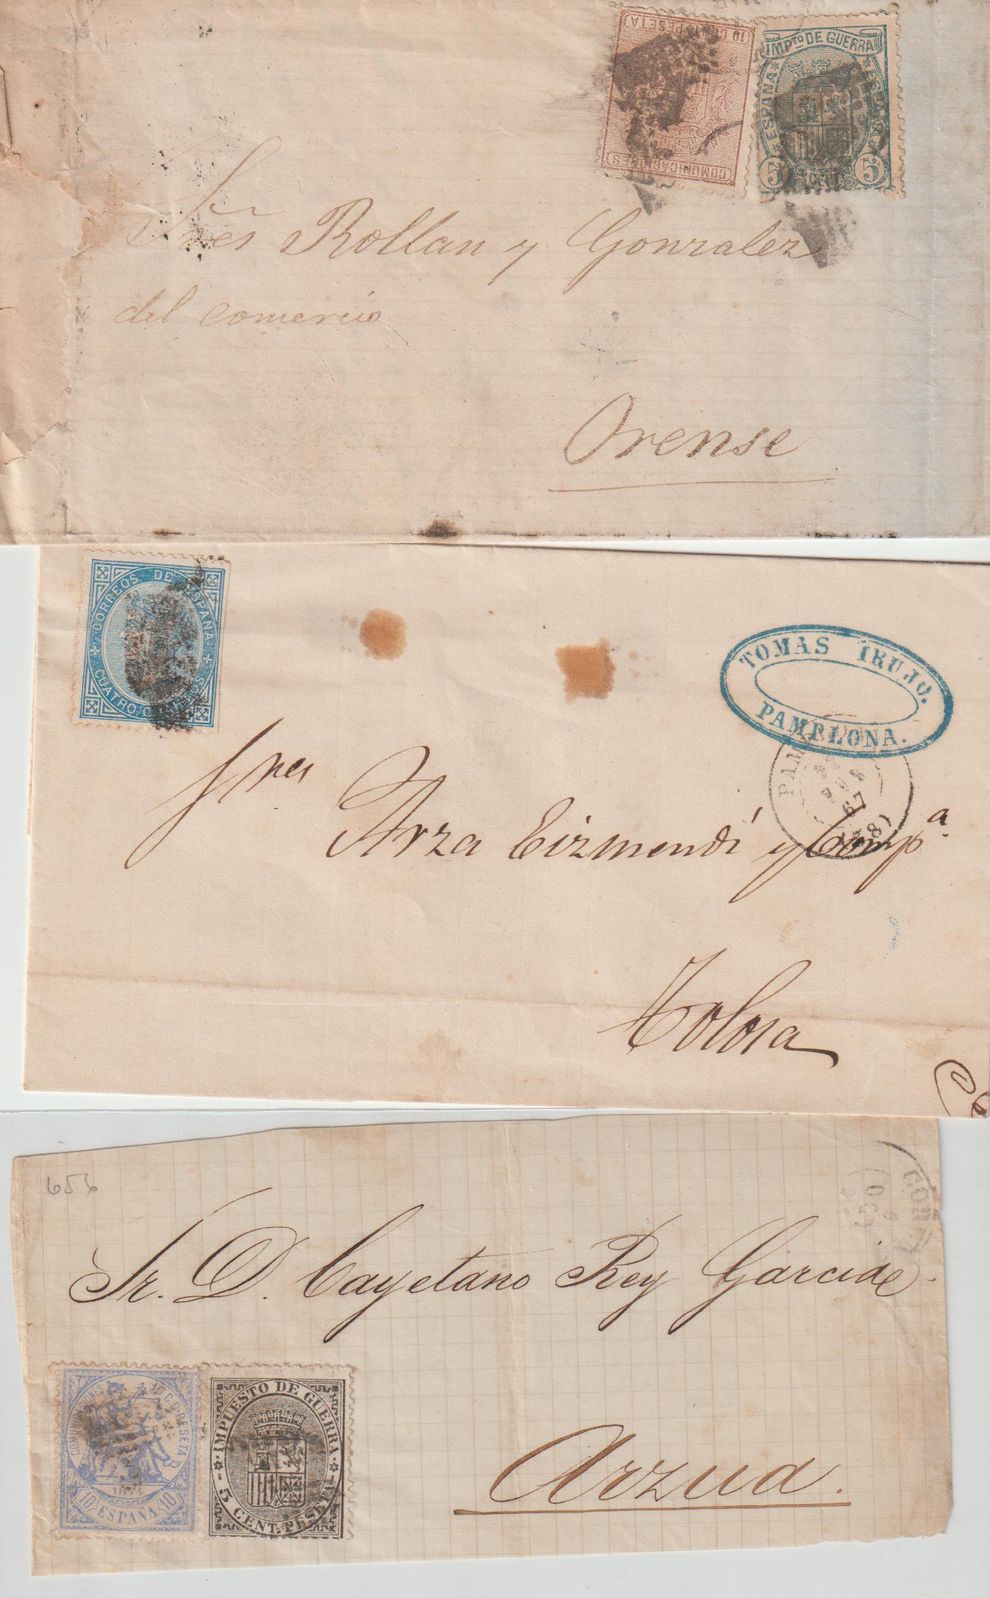 10 CENT PESETA
COMUNICACIONES
IMPTO DE GUERRA
ESPAÑA
5 CENT 5
Sres Rollan y Gonzalez
del comercio
Orense
CORREOS DE ESPAÑA
CUATRO CUARTOS
TOMAS IRUJO.
PAMPLONA.
PAM
67
(28)
Sres
Arza Eizmendi y Compª.
Tolosa
656
CORU
Sr. D. Cayetano Rey Garcia de
10 C. DE PESETA
1874
10 ESPAÑA 10
IMPUESTO DE GUERRA
5 CENT. PESETA
Arzua.